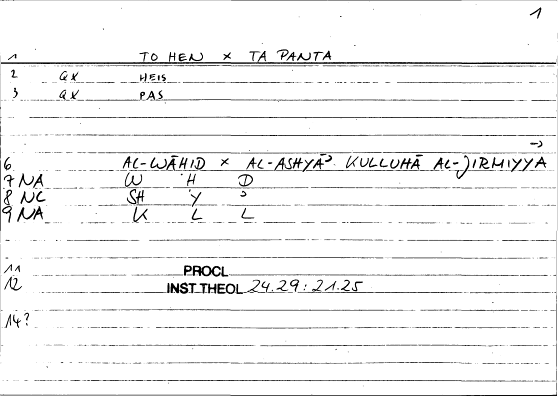 1
1 TO HEN × TA PANTA
2 QX HEIS
3 QX PAS
→
6 AL-WĀHID × AL-ASHYĀʾ KULLUHĀ AL-JIRMIYYA
7 NA W H D
8 NC SH Y ʾ
9 NA K L L
11 PROCL
12 INST THEOL 24.29:21.25
14?